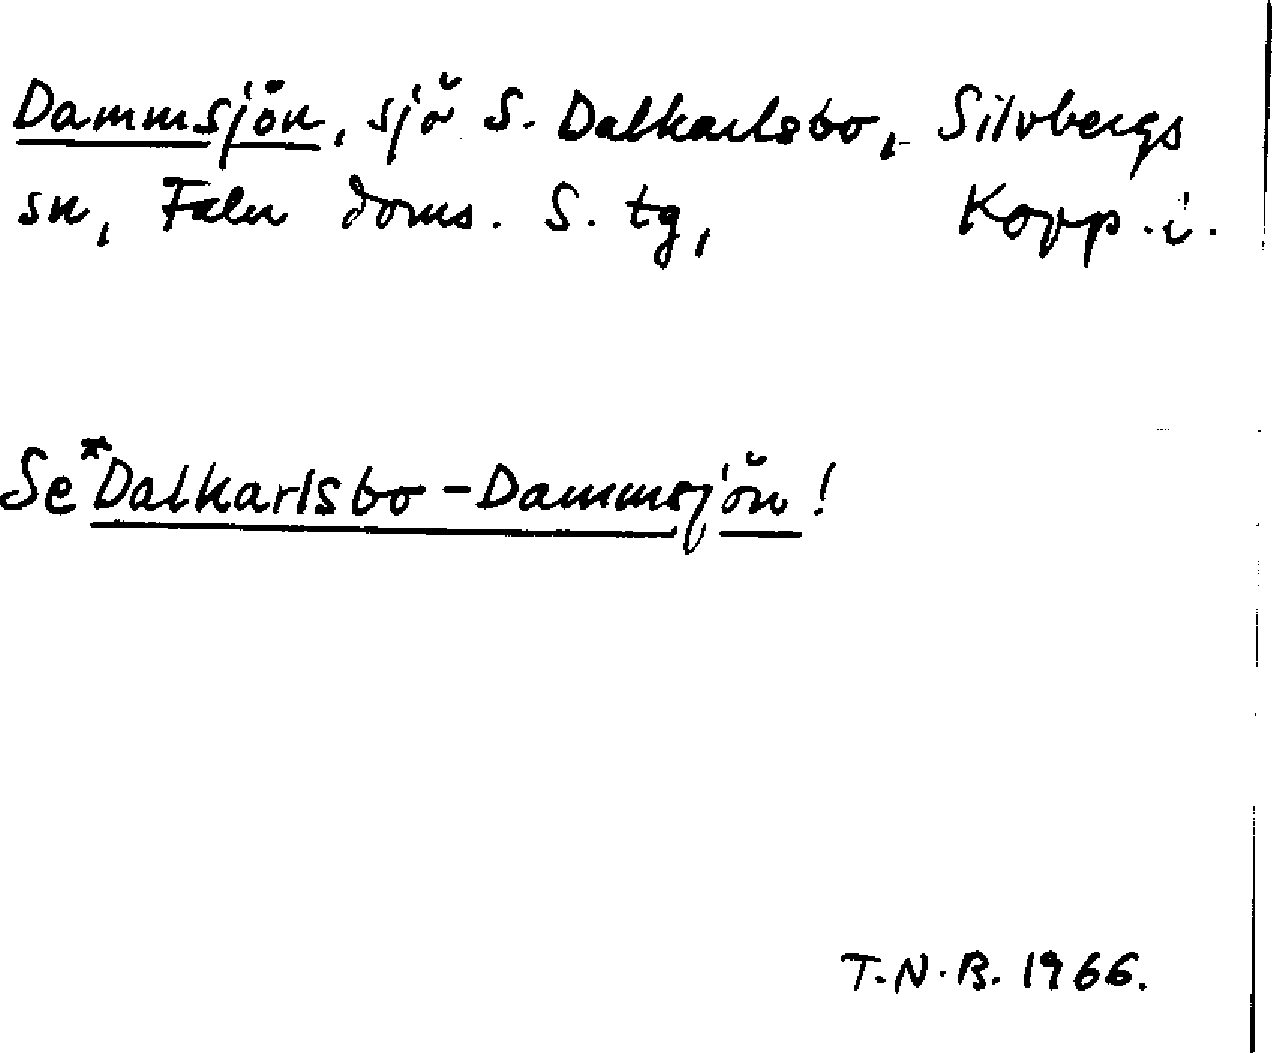 Dammsjön, sjö S. Dalkarlsbo, Silvbergs
sn, Falu doms. S. tg, Kopp. l.
Se *Dalkarlsbo-Dammsjön!
T.N.B. 1966.